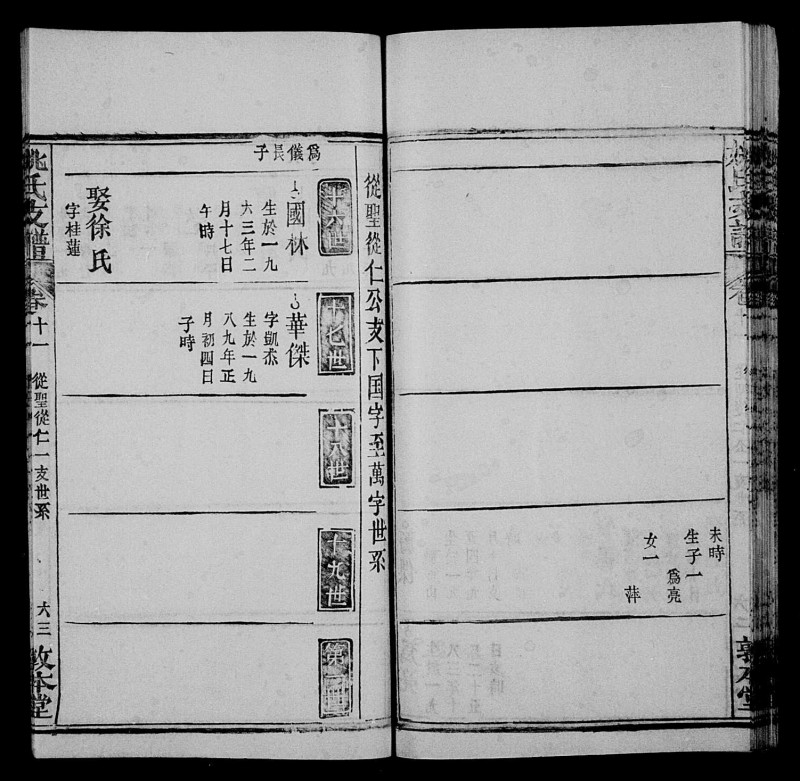 未時
生子一
為亮
女一
萍
從聖從仁公支下国字至萬字世系
十六世
十七世
十八世
十九世
為儀長子
國林
生於一九
六三年二
月十七日
午時
娶徐氏
字桂蓮
華傑
字凱杰
生於一九
八九年正
月初四日
子時
姚氏支譜
卷十一
從聖從仁一支世系
六三
敦本堂